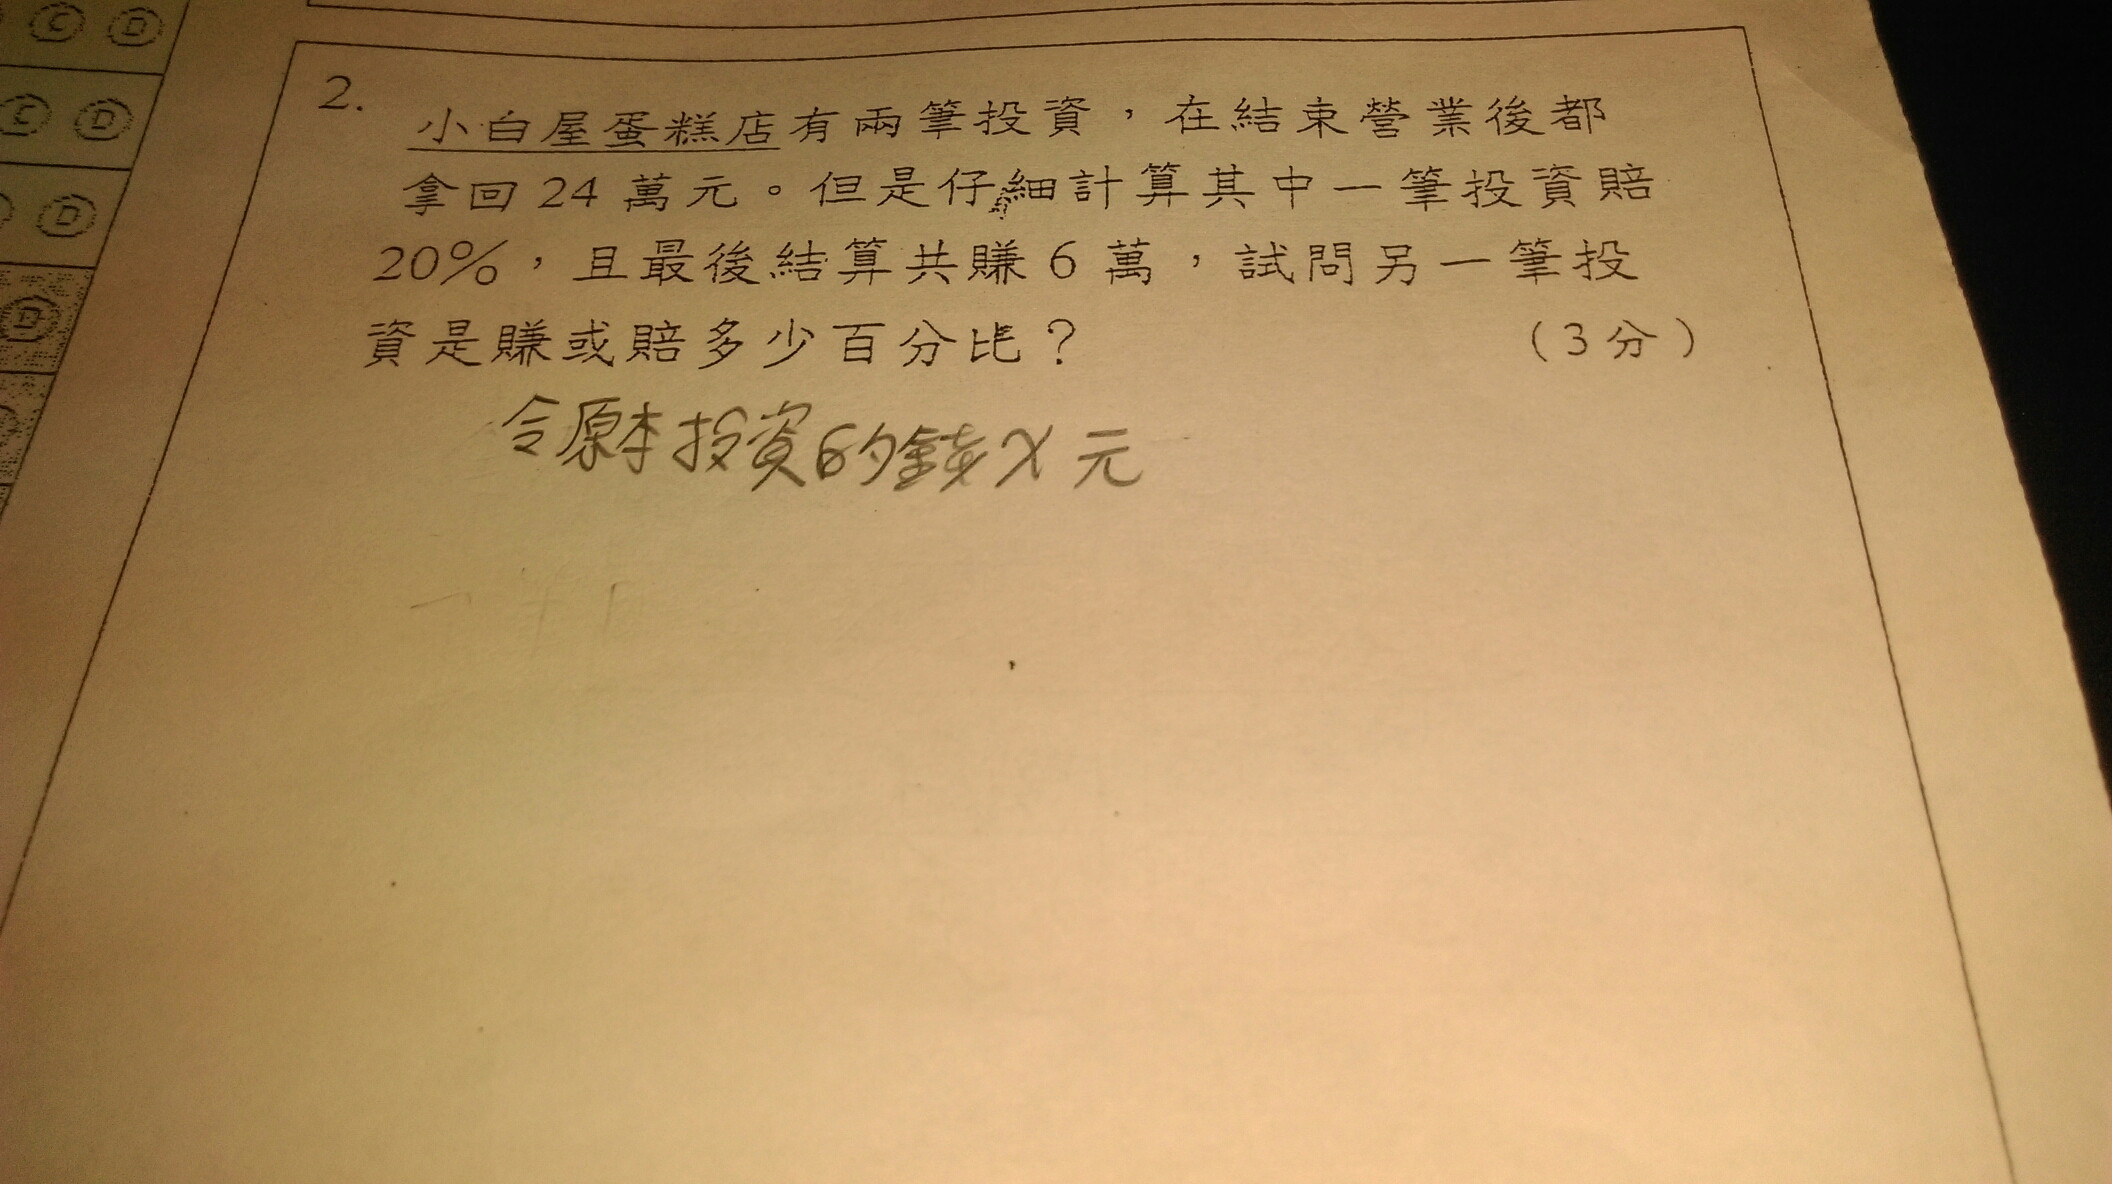 C D
C D
D
D
2.
小白屋蛋糕店有兩筆投資,在結束營業後都
拿回 24 萬元。但是仔細計算其中一筆投資賠
20%,且最後結算共賺 6 萬,試問另一筆投
資是賺或賠多少百分比?(3分)
令原本投資的錢X元